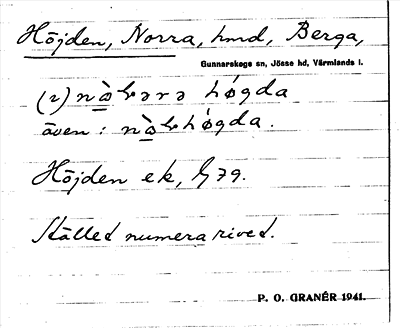 Höjden, Norra, hmd, Berga,
Gunnarskogs sn, Jösse hd, Värmlands l.
(i) hǿgda
även:
Höjden ek, G 79.
Stället numera rivet.
P. O. GRANÉR 1941.